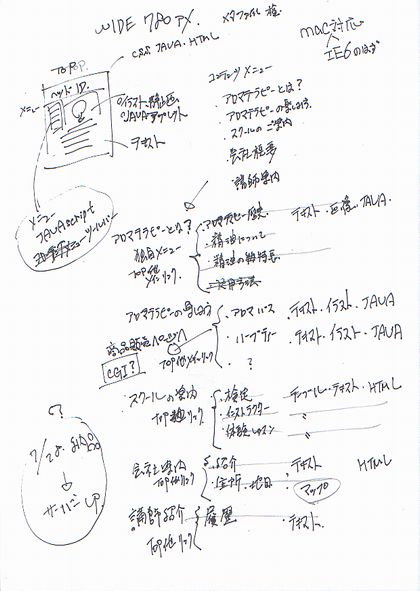 WIDE 780 PX.
mac対応
IE6のはず
CSS JAVA. HTML
TOP P.
ヘッド ID.
メニュー
イラスト、静止画、
JAVAアプレット
テキスト
コンテンツメニュー
・アロマテラピーとは?
・アロマテラピーの楽しみ方
・スクールのご案内
・会社概要
・講師案内
メニュー
JAVAscript
アロマテラピーとは?
独自メニュー
TOP他
メインリンク.
・アロマテラピー歴史
テキスト・画像. JAVA.
・精油について
・精油の特長
アロマテラピーの楽しみ方
・アロマバス
テキスト. イラスト. JAVA
商品販売ページへ
TOP他メインリンク
・ハーブティー
テキスト. イラスト. JAVA
・?
CGI?
スクールの案内
TOP他リンク
・検定
テーブル・テキスト・HTML
・インストラクター
・体験レッスン
?
7/28.
↓
サーバー UP.
会社案内
TOP他リンク
・紹介
・テキスト
HTML
・住所. 地図
・マップ
・講師紹介
TOP他リンク
・履歴
・テキスト.